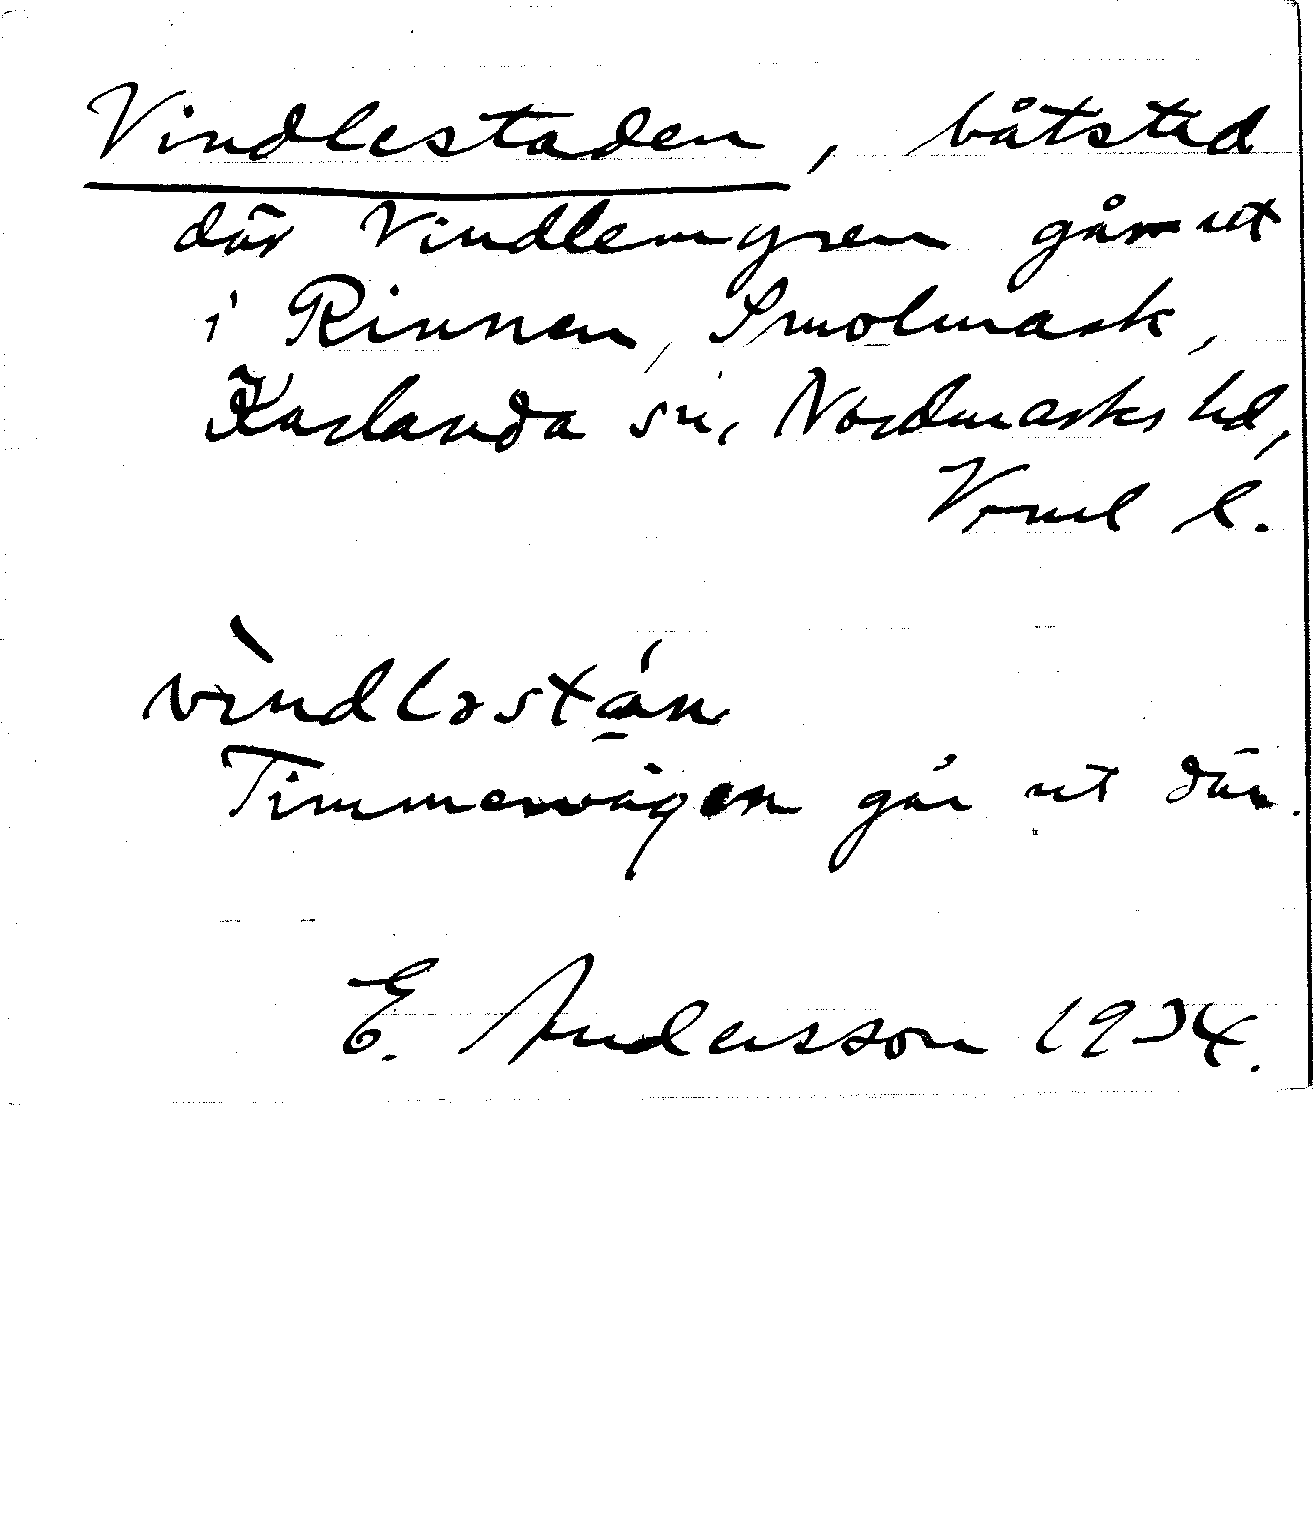 Vindlestaden, båtstad
där Vindlemyren går ut
i Rinnen, Smolmark,
Karlanda sn, Nordmarks hd,
Vrml l.
vìndləstán
Timmervägen går ut där.
E. Andersson 1934.